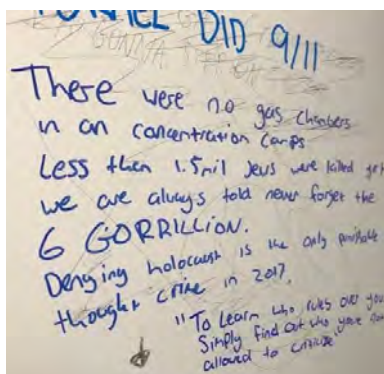 DID 9/11
GONNA
There were no gas chambers
in an concentration camps
Less then 1.5mil Jews were killed yet
we are always told never forget the
6 GORRILLION.
Denying holocaust is the only punishable
thought crime in 2017.
"To Learn who rules over you
Simply find out who your not
allowed to criticize"